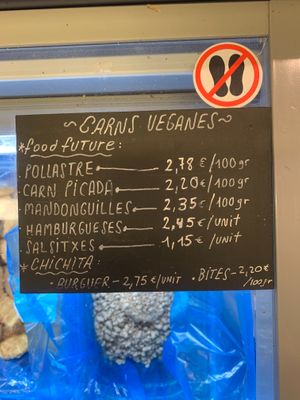 ~CARNS VEGANES~
*food future:
.POLLASTRE 2,78 €/100gr
.CARN PICADA 2,20€/100gr
.MANDONGUILLES 2,35€/100gr
.HAMBURGUESES 2,45€/UNIT
.SALSITXES 1,15€/UNIT
*CHICHITA:
·BURGUER-2,75€/UNIT ·BITES-2,20€
/100gr